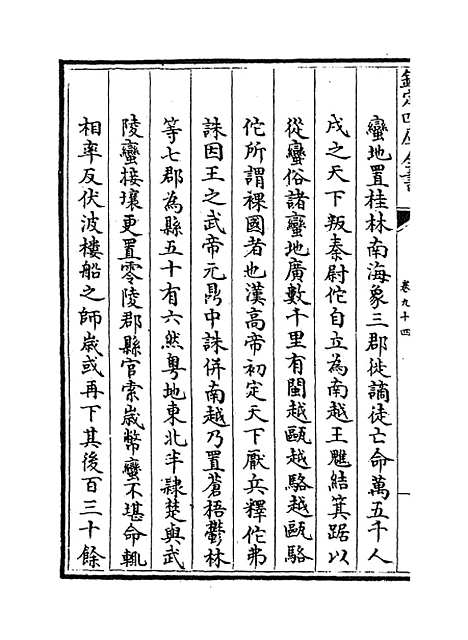 欽定四庫全書
卷九十四
蠻地置桂林南海象三郡徙謫徒亡命萬五千人
戍之天下叛秦尉佗自立為南越王魋結箕踞以
從蠻俗諸蠻地廣數千里有閩越甌越駱越甌駱
佗所謂裸國者也漢高帝初定天下厭兵釋佗弗
誅因王之武帝元鼎中誅併南越乃置蒼梧鬱林
等七郡為縣五十有六然粤地東北半隷楚與武
陵蠻接壤更置零陵郡縣官索嵗幣蠻不堪命輒
相率反伏波樓船之師嵗或再下其後百三十餘